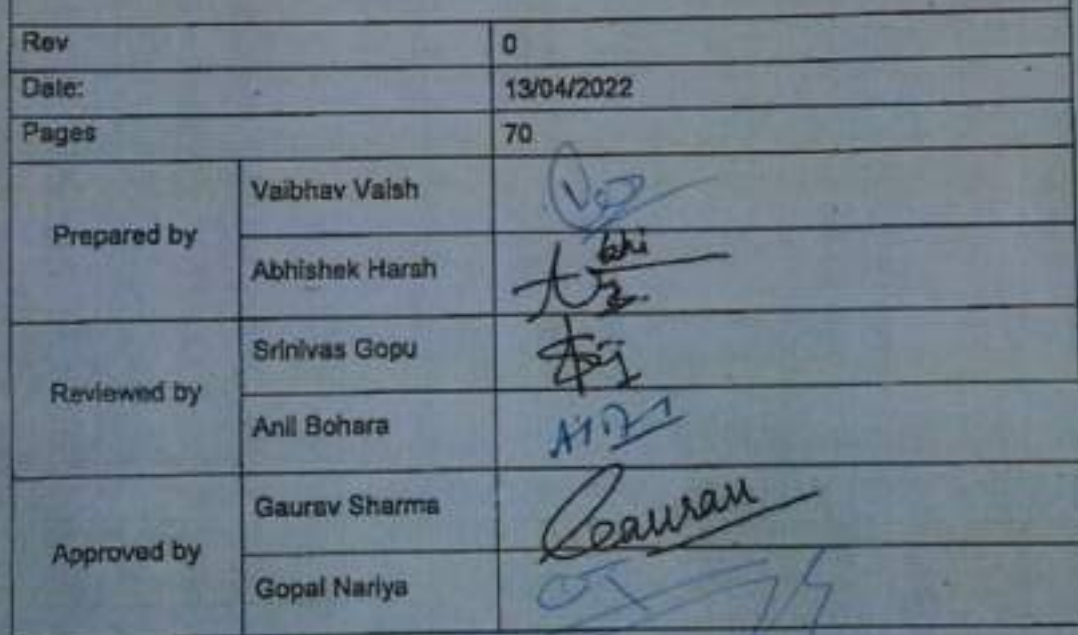 Rev 0
Date: 13/04/2022
Pages 70
Prepared by
Vaibhav Vaish
Abhishek Harsh
Reviewed by
Srinivas Gopu
Anil Bohara
Approved by
Gaurav Sharma
Gaurav
Gopal Nariya